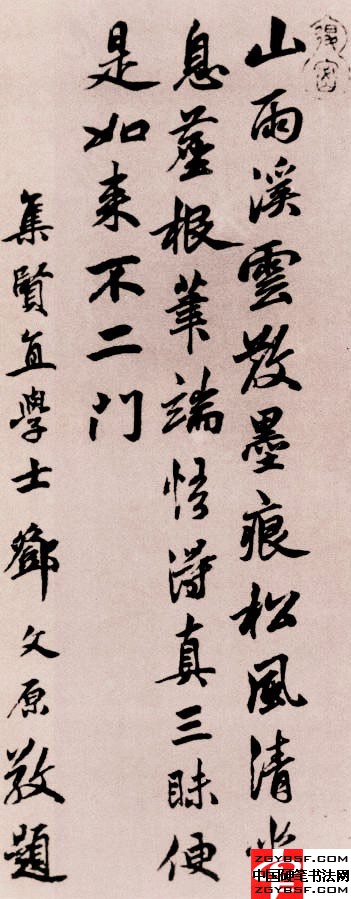 山雨溪雲散墨痕松風清坐
息塵根筆端悟得真三昧便
是如来不二門
集賢直學士鄧文原敬題
ZGYBSF.COM
中国硬笔书法网
ZGYBSF.COM